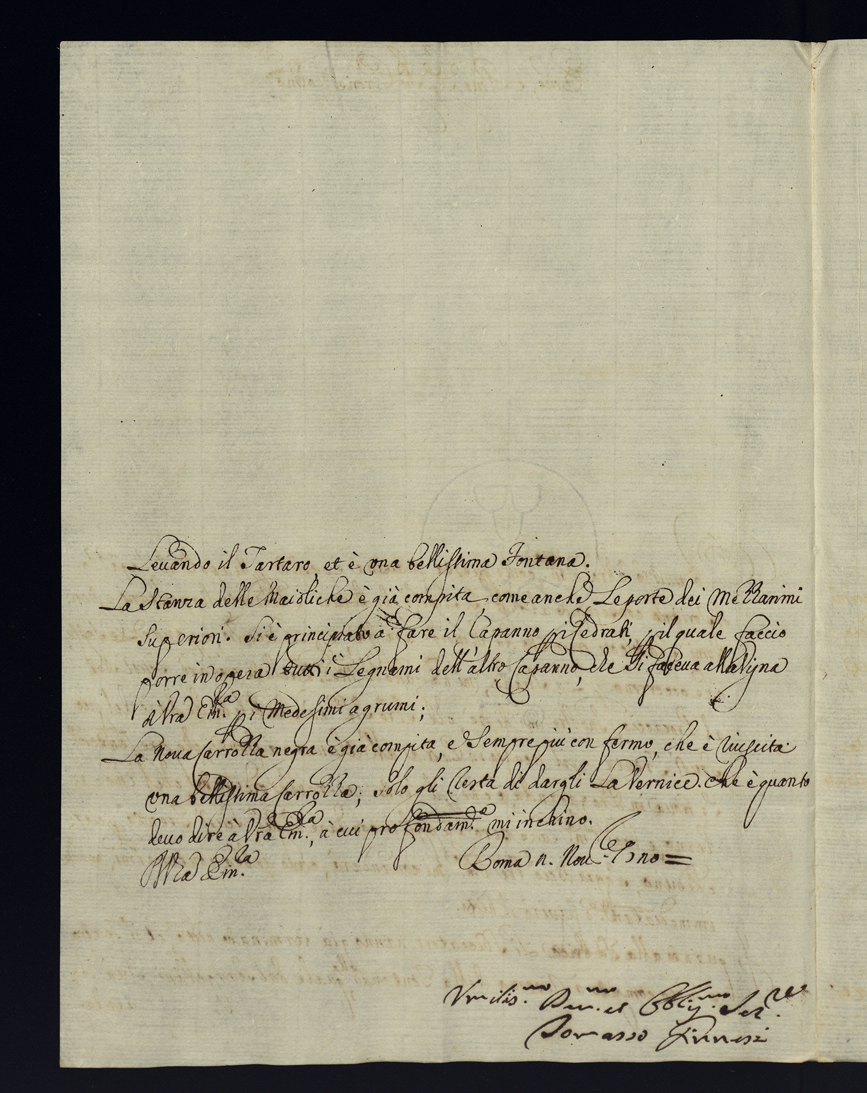 Levando il Tartaro et è una bellissima Fontana.
La Stanza delle Maioliche è già compita, come anche Le porte dei Mezzanini
Superiori. Si è principiato à fare il Capanno p i Cedrati, p il quale faccio
porre in opera tutti i Legnami dell'altro Capanno, che Si faceva alla Vigna
di Vra Em.za p i Medesimi agrumi;
La Nova Carrozza negra è già compita, e Sempre più confermo, che è riuscita
una bellissima Carrozza; Solo gli resta di dargli La Vernice. Che è quanto
devo dire à Vra Em.za, à cui profondam.te mi inchino.
Di Vra Em.za
Roma Nov.re
Umilis.mo Dev.mo et Obblig.mo Ser.re
Tomasso